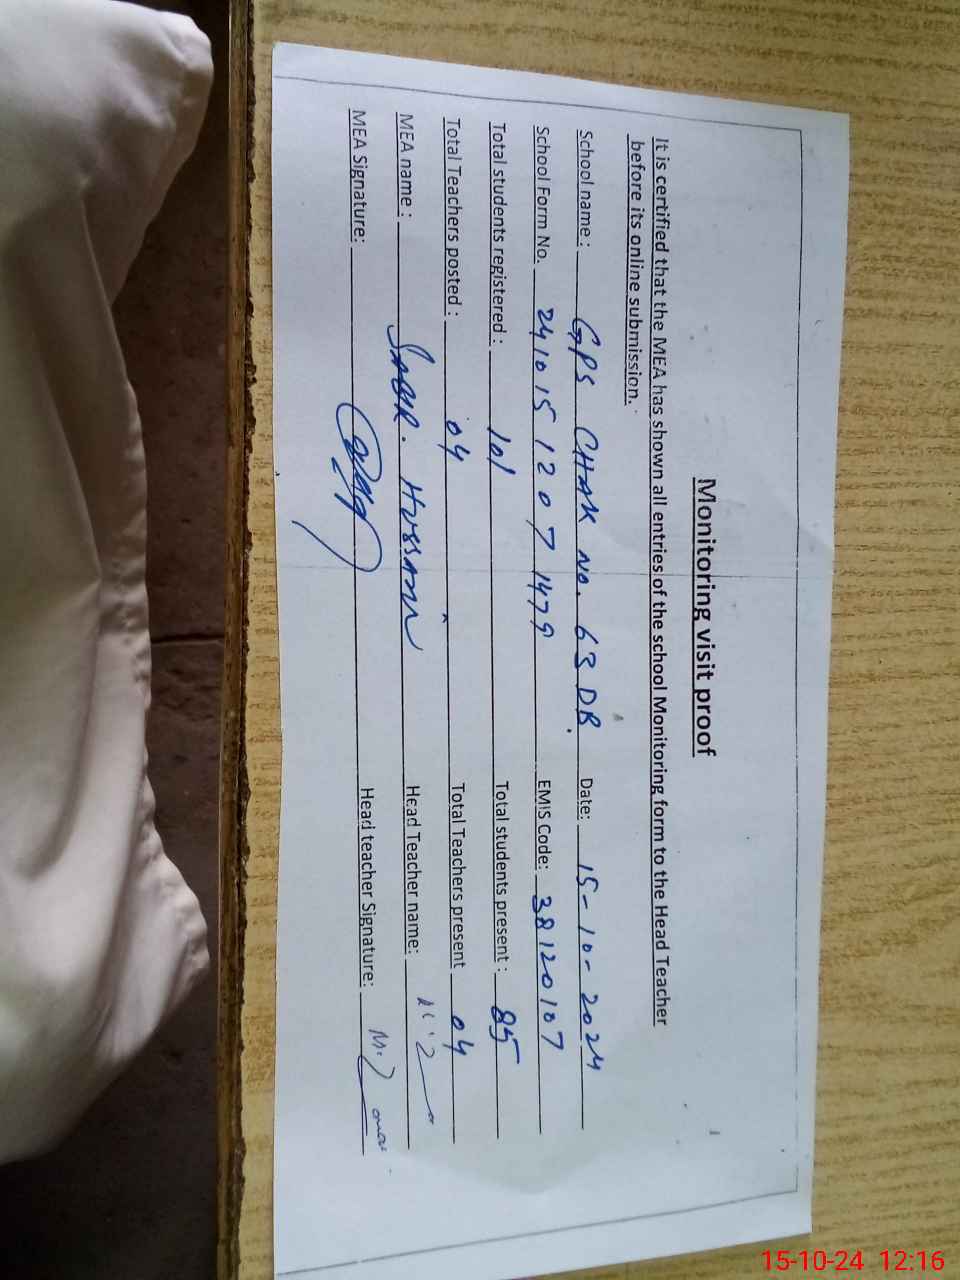 Monitoring visit proof
It is certified that the MEA has shown all entries of the school Monitoring form to the Head Teacher
before its online submission.
School name: GPS CHAK No. 63 DB. Date: 15-10-2024
School Form No. 241015 1207 1479 EMIS Code: 38120107
Total students registered: 101 Total students present: 85
Total Teachers posted: 04 Total Teachers present 04
MEA name: SABIR. HUSSAIN Head Teacher name:
MEA Signature: Head teacher Signature:
15-10-24 12:16